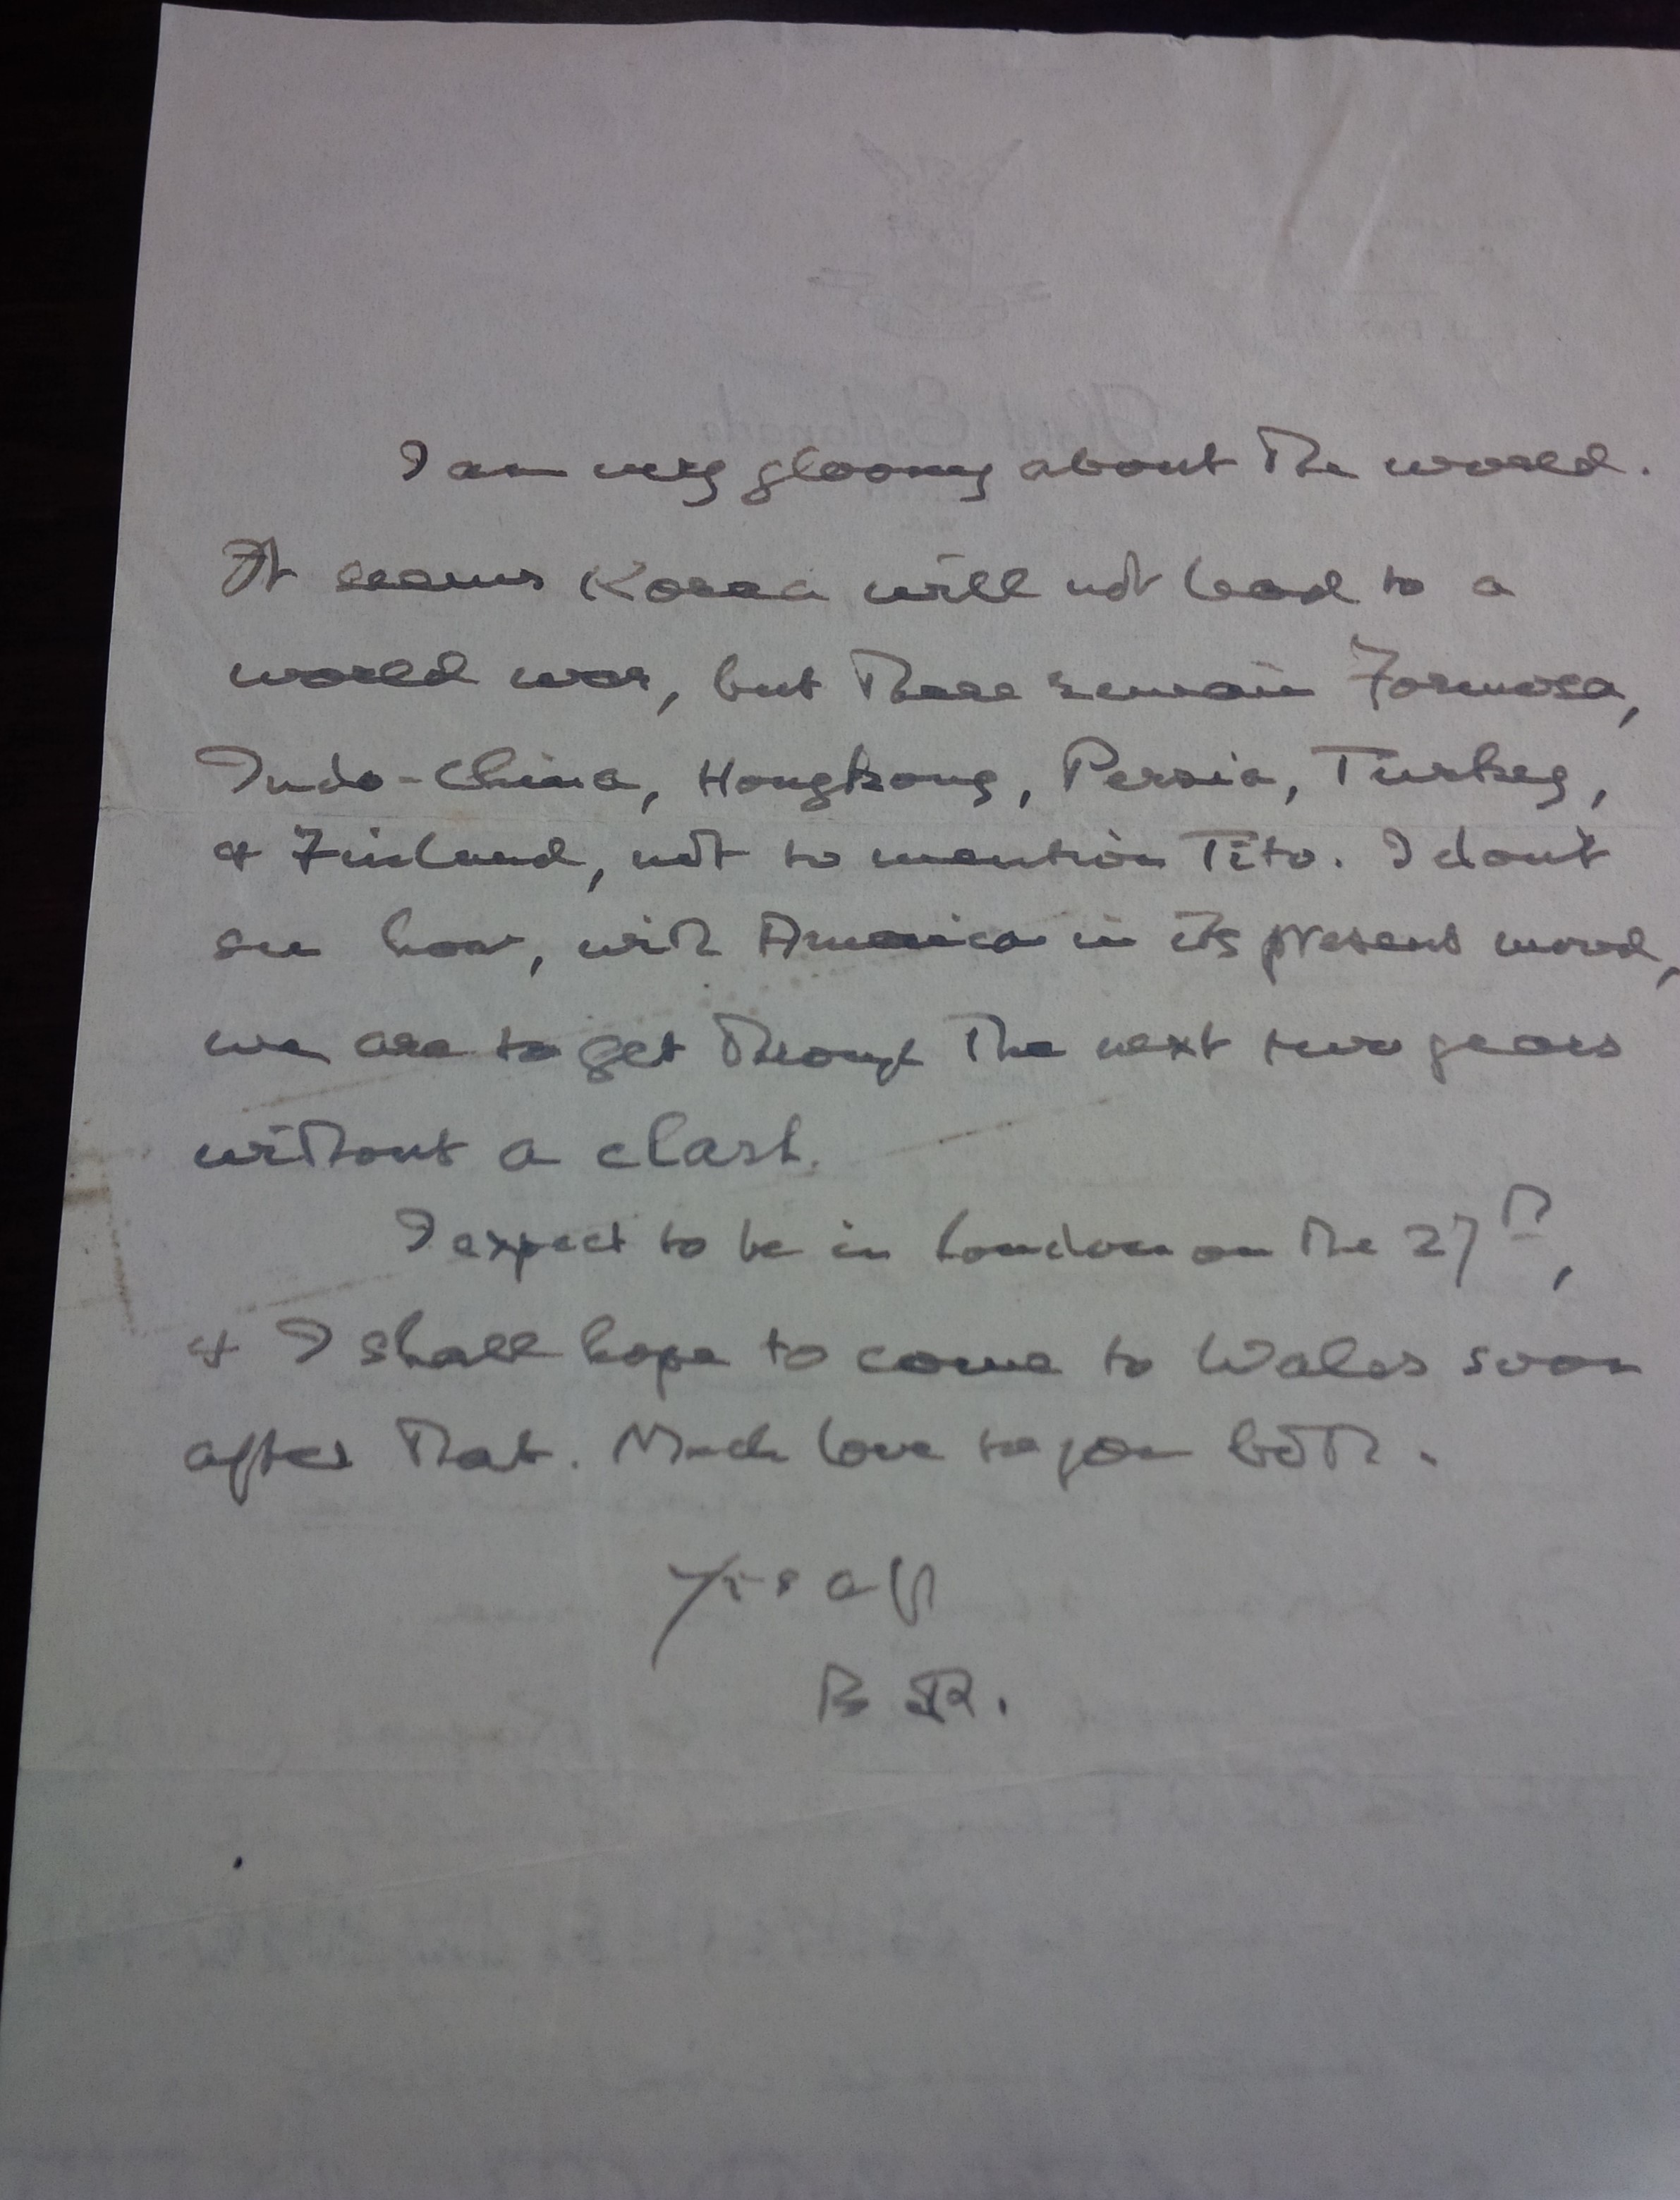 I am very gloomy about the world.
It seems Korea will not lead to a
world war, but there remain Formosa,
Indo-China, Hongkong, Persia, Turkey,
& Finland, not to mention Tito. I don't
see how, with America in its present mood,
we are to get through the next two years
without a clash.
I expect to be in London on the 27th,
& I shall hope to come to Wales soon
after that. Much love to you both.
Yrs aff
B R.